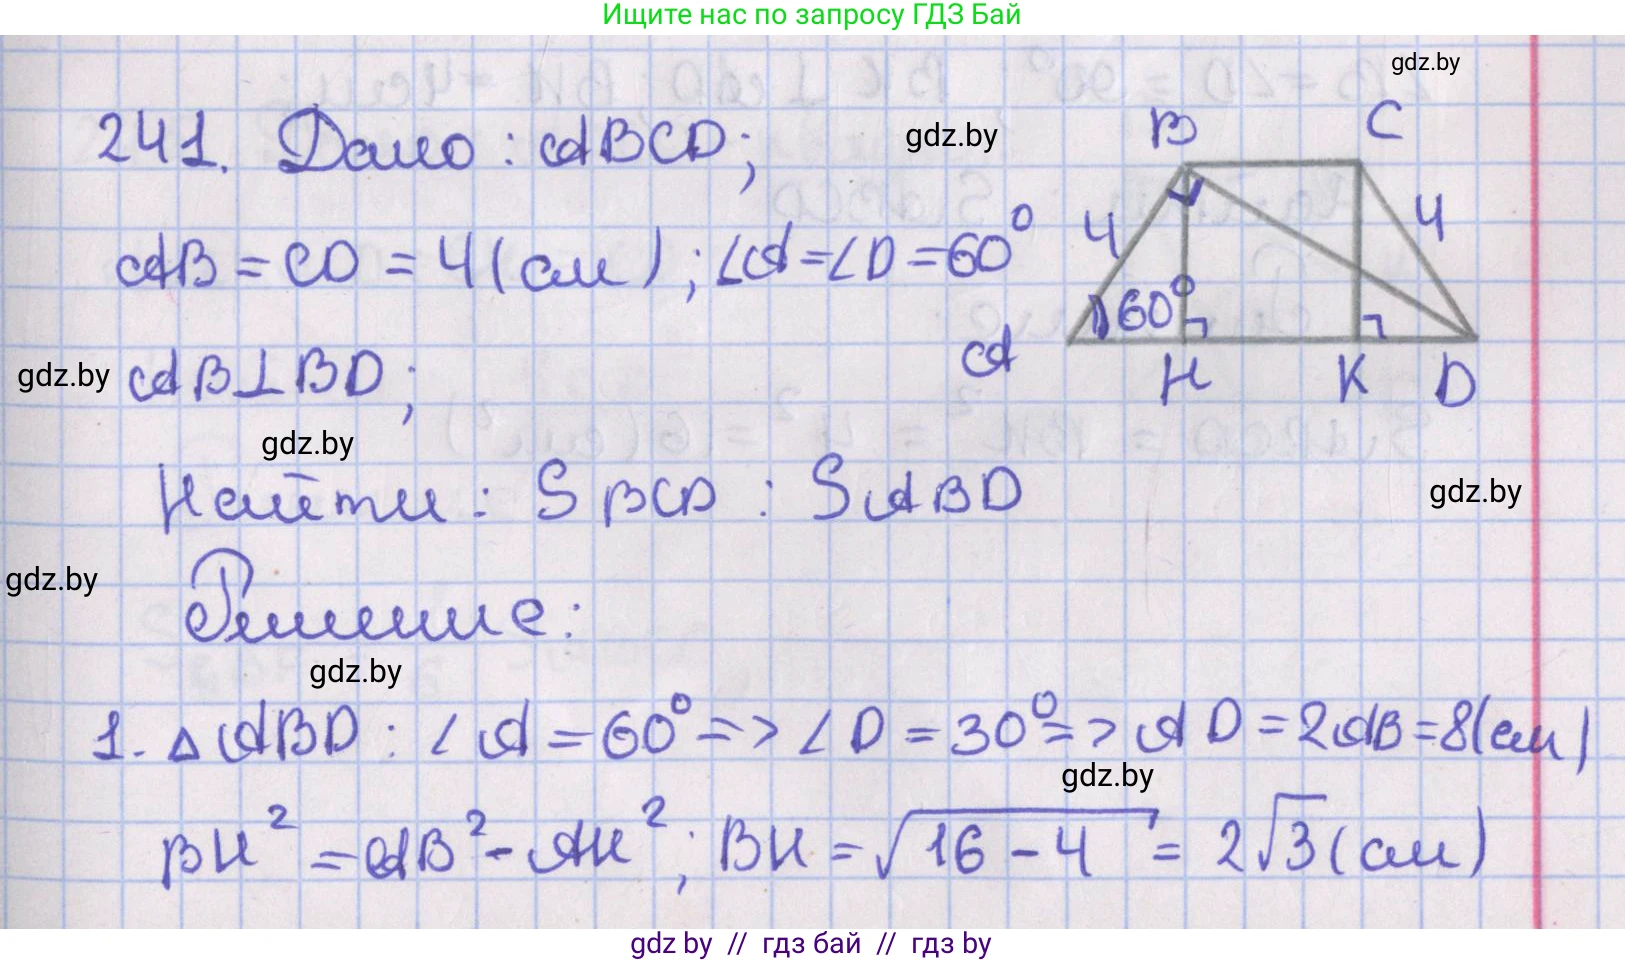 Ищите нас по запросу ГДЗ Бай
gdz.by
241. Дано: ABCD;
gdz.by
B C
AB = CD = 4(см); ∠A = ∠D = 60°
4 4
60°
A H K D
gdz.by
AB⊥BD;
gdz.by
Найти: S BCD : S ABD
gdz.by
gdz.by
Решение:
gdz.by
1. △ABD: ∠A = 60° => ∠D = 30° => AD = 2AB = 8(см)
gdz.by
BH² = AB² - AH²; BH = √16 - 4 = 2√3 (см)
gdz by // гдз бай // гдз by